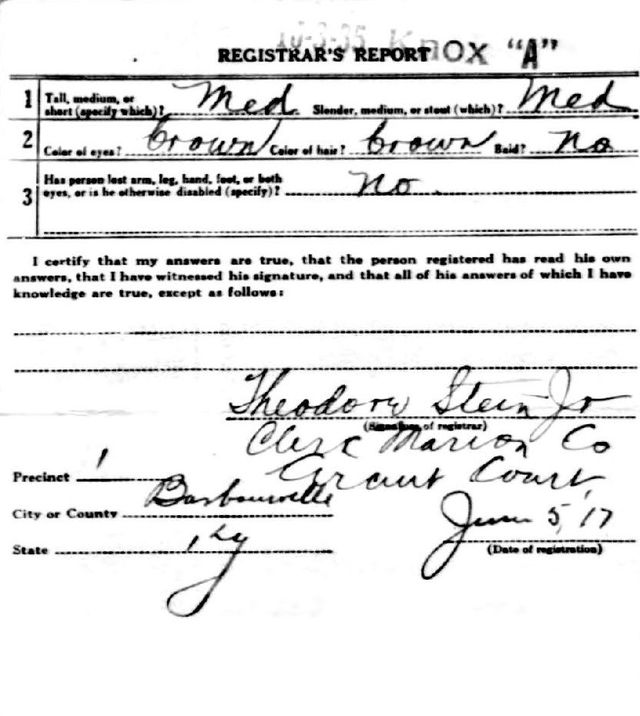 REGISTRAR'S REPORT KNOX "A"
1 Tall, medium, or short (specify which)? Med Slender, medium, or stout (which)? Med
2 Color of eyes? Brown Color of hair? Brown Bald? No
3 Has person lost arm, leg, hand, foot, or both
eyes, or is he otherwise disabled (specify)? No
I certify that my answers are true, that the person registered has read his own
answers, that I have witnessed his signature, and that all of his answers of which I have
knowledge are true, except as follows:
Theodore Stein Jr
(Signature of registrar)
Clerk Marion Co
Court
Precinct 1
City or County Barbourville
June 5, 17
State Ky
(Date of registration)